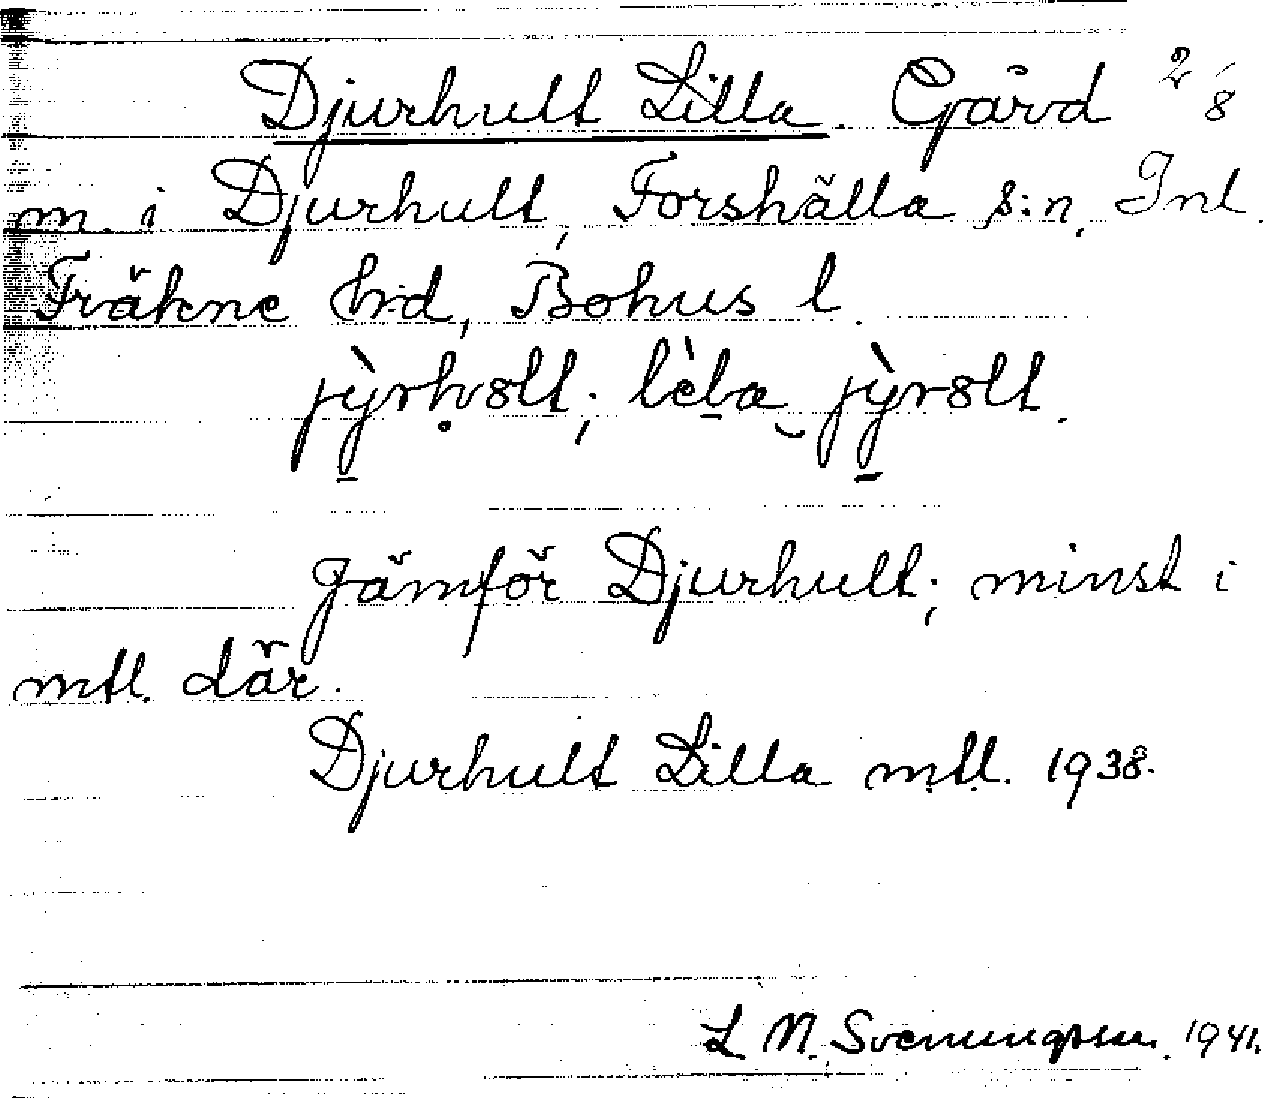 Djurhult Lilla. Gård 2/8
m. i Djurhult, Forshälla s:n, Inl.
Fräkne hrd, Bohus l.
jỳrhvólt; lèla jỳrólt.
Jämför Djurhult; minst i
mtl. där.
Djurhult Lilla mtl. 1938.
L. N. Svenungsson. 1941.